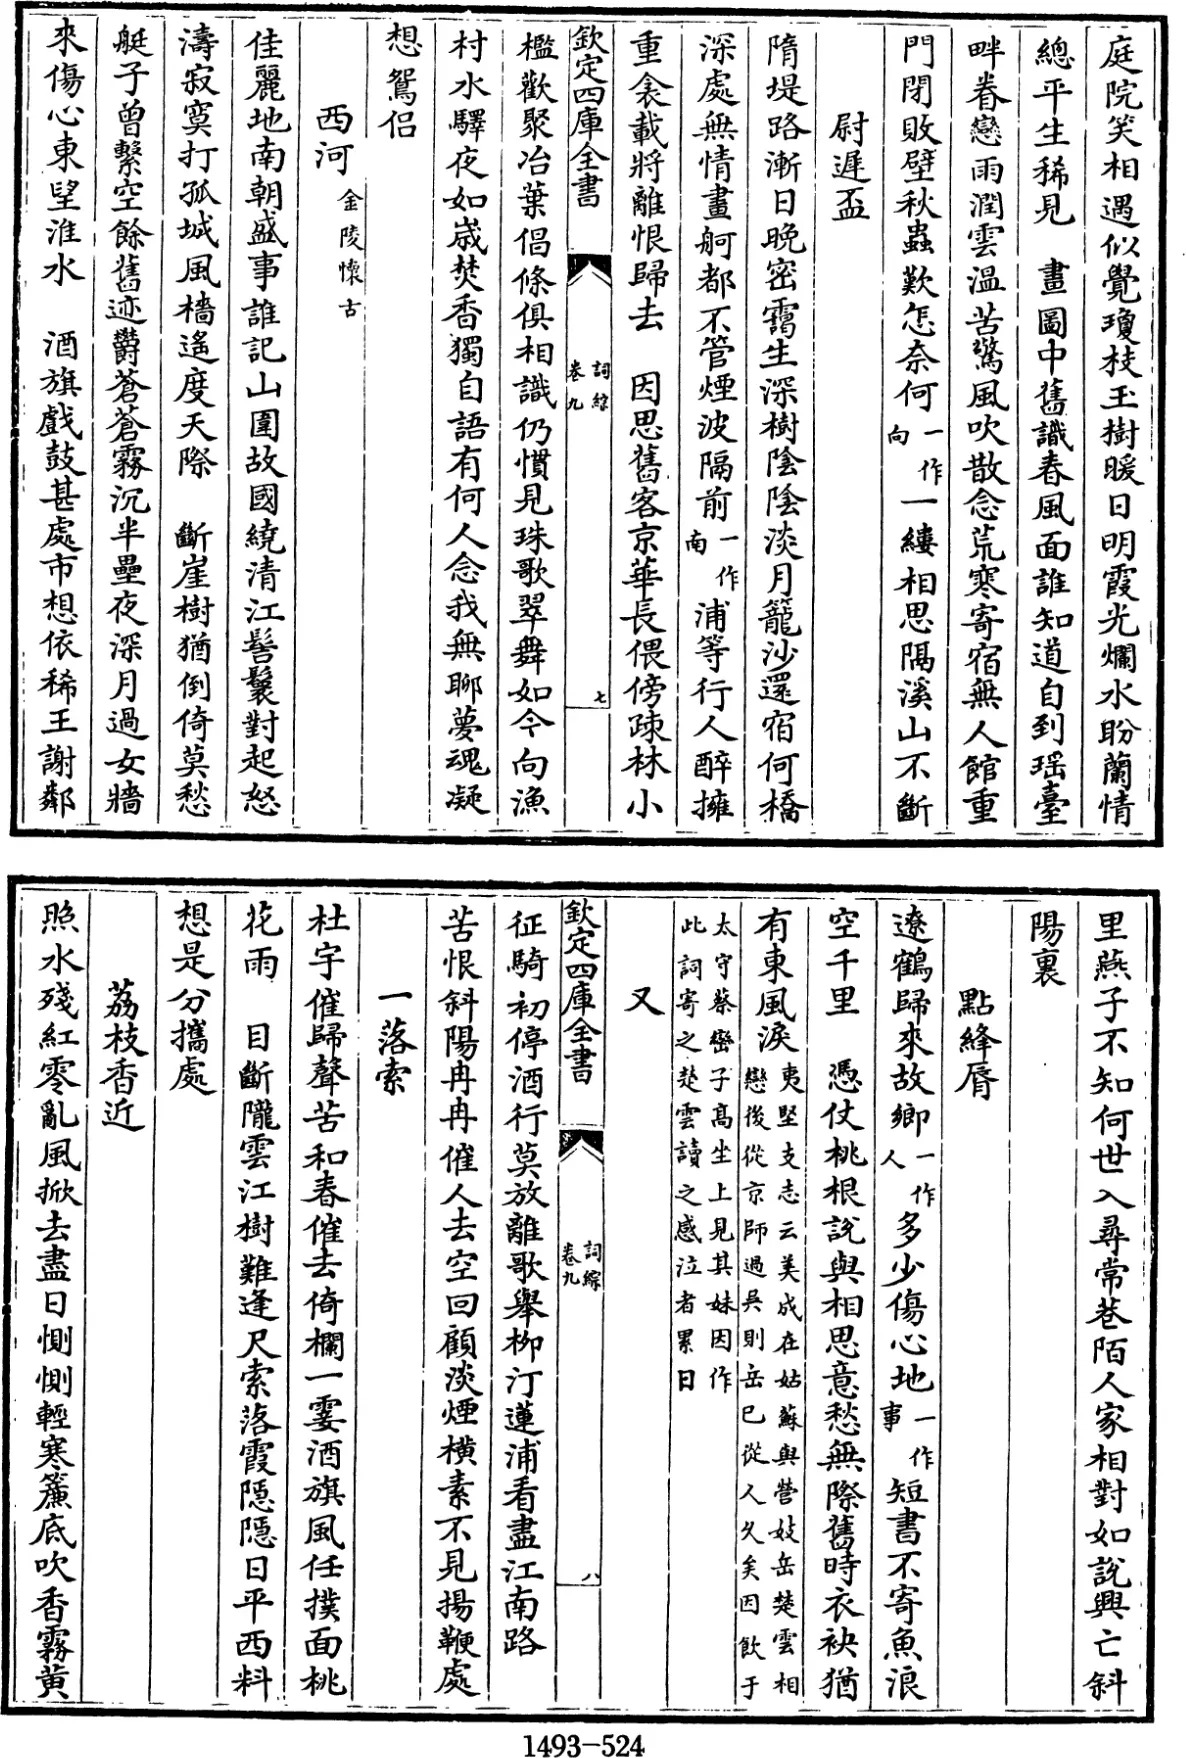 庭院笑相遇似覺瓊枝玉樹暖日明霞光爛水盼蘭情
總平生稀見　畫圖中舊識春風面誰知道自到瑶臺
畔眷戀雨潤雲温苦驚風吹散念荒寒寄宿無人館重
門閉敗壁秋蟲歎怎奈何一作向一縷相思隔溪山不斷
尉遲盃
隋堤路漸日晚密靄生深樹陰陰淡月籠沙還宿河橋
深處無情畫舸都不管煙波隔前一作南浦等行人醉擁
重衾載將離恨歸去　因思舊客京華長偎傍疎林小
欽定四庫全書
詞綜
卷九
七
檻歡聚冶葉倡條俱相識仍慣見珠歌翠舞如今向漁
村水驛夜如歲焚香獨自語有何人念我無聊夢魂凝
想鴛侣
西河金陵懷古
佳麗地南朝盛事誰記山圍故國繞清江髻鬟對起怒
濤寂寞打孤城風檣遙度天際　斷崖樹猶倒倚莫愁
艇子曾繫空餘舊迹鬱蒼蒼霧沉半壘夜深月過女牆
來傷心東望淮水　酒旗戲鼓甚處市想依稀王謝鄰
里燕子不知何世入尋常巷陌人家相對如說興亡斜
陽裏
點絳脣
遼鶴歸來故鄉一作人多少傷心地一作事短書不寄魚浪
空千里　憑仗桃根說與相思意愁無際舊時衣袂猶
有東風淚夷堅支志云美成在姑蘇與營妓岳楚雲相
戀後從京師過吳則岳已從人久矣因飲于
太守蔡巒子髙坐上見其妹因作
此詞寄之楚雲讀之感泣者累日
又
征騎初停酒行莫放離歌舉柳汀蓮浦看盡江南路
苦恨斜陽冉冉催人去空回顧淡煙横素不見揚鞭處
欽定四庫全書
詞綜
卷九
八
一落索
杜宇催歸聲苦和春催去倚欄一霎酒旗風任撲面桃
花雨　目斷隴雲江樹難逢尺素落霞隱隱日平西料
想是分攜處
荔枝香近
照水殘紅零亂風掀去盡日惻惻輕寒簾底吹香霧黄
1493-524